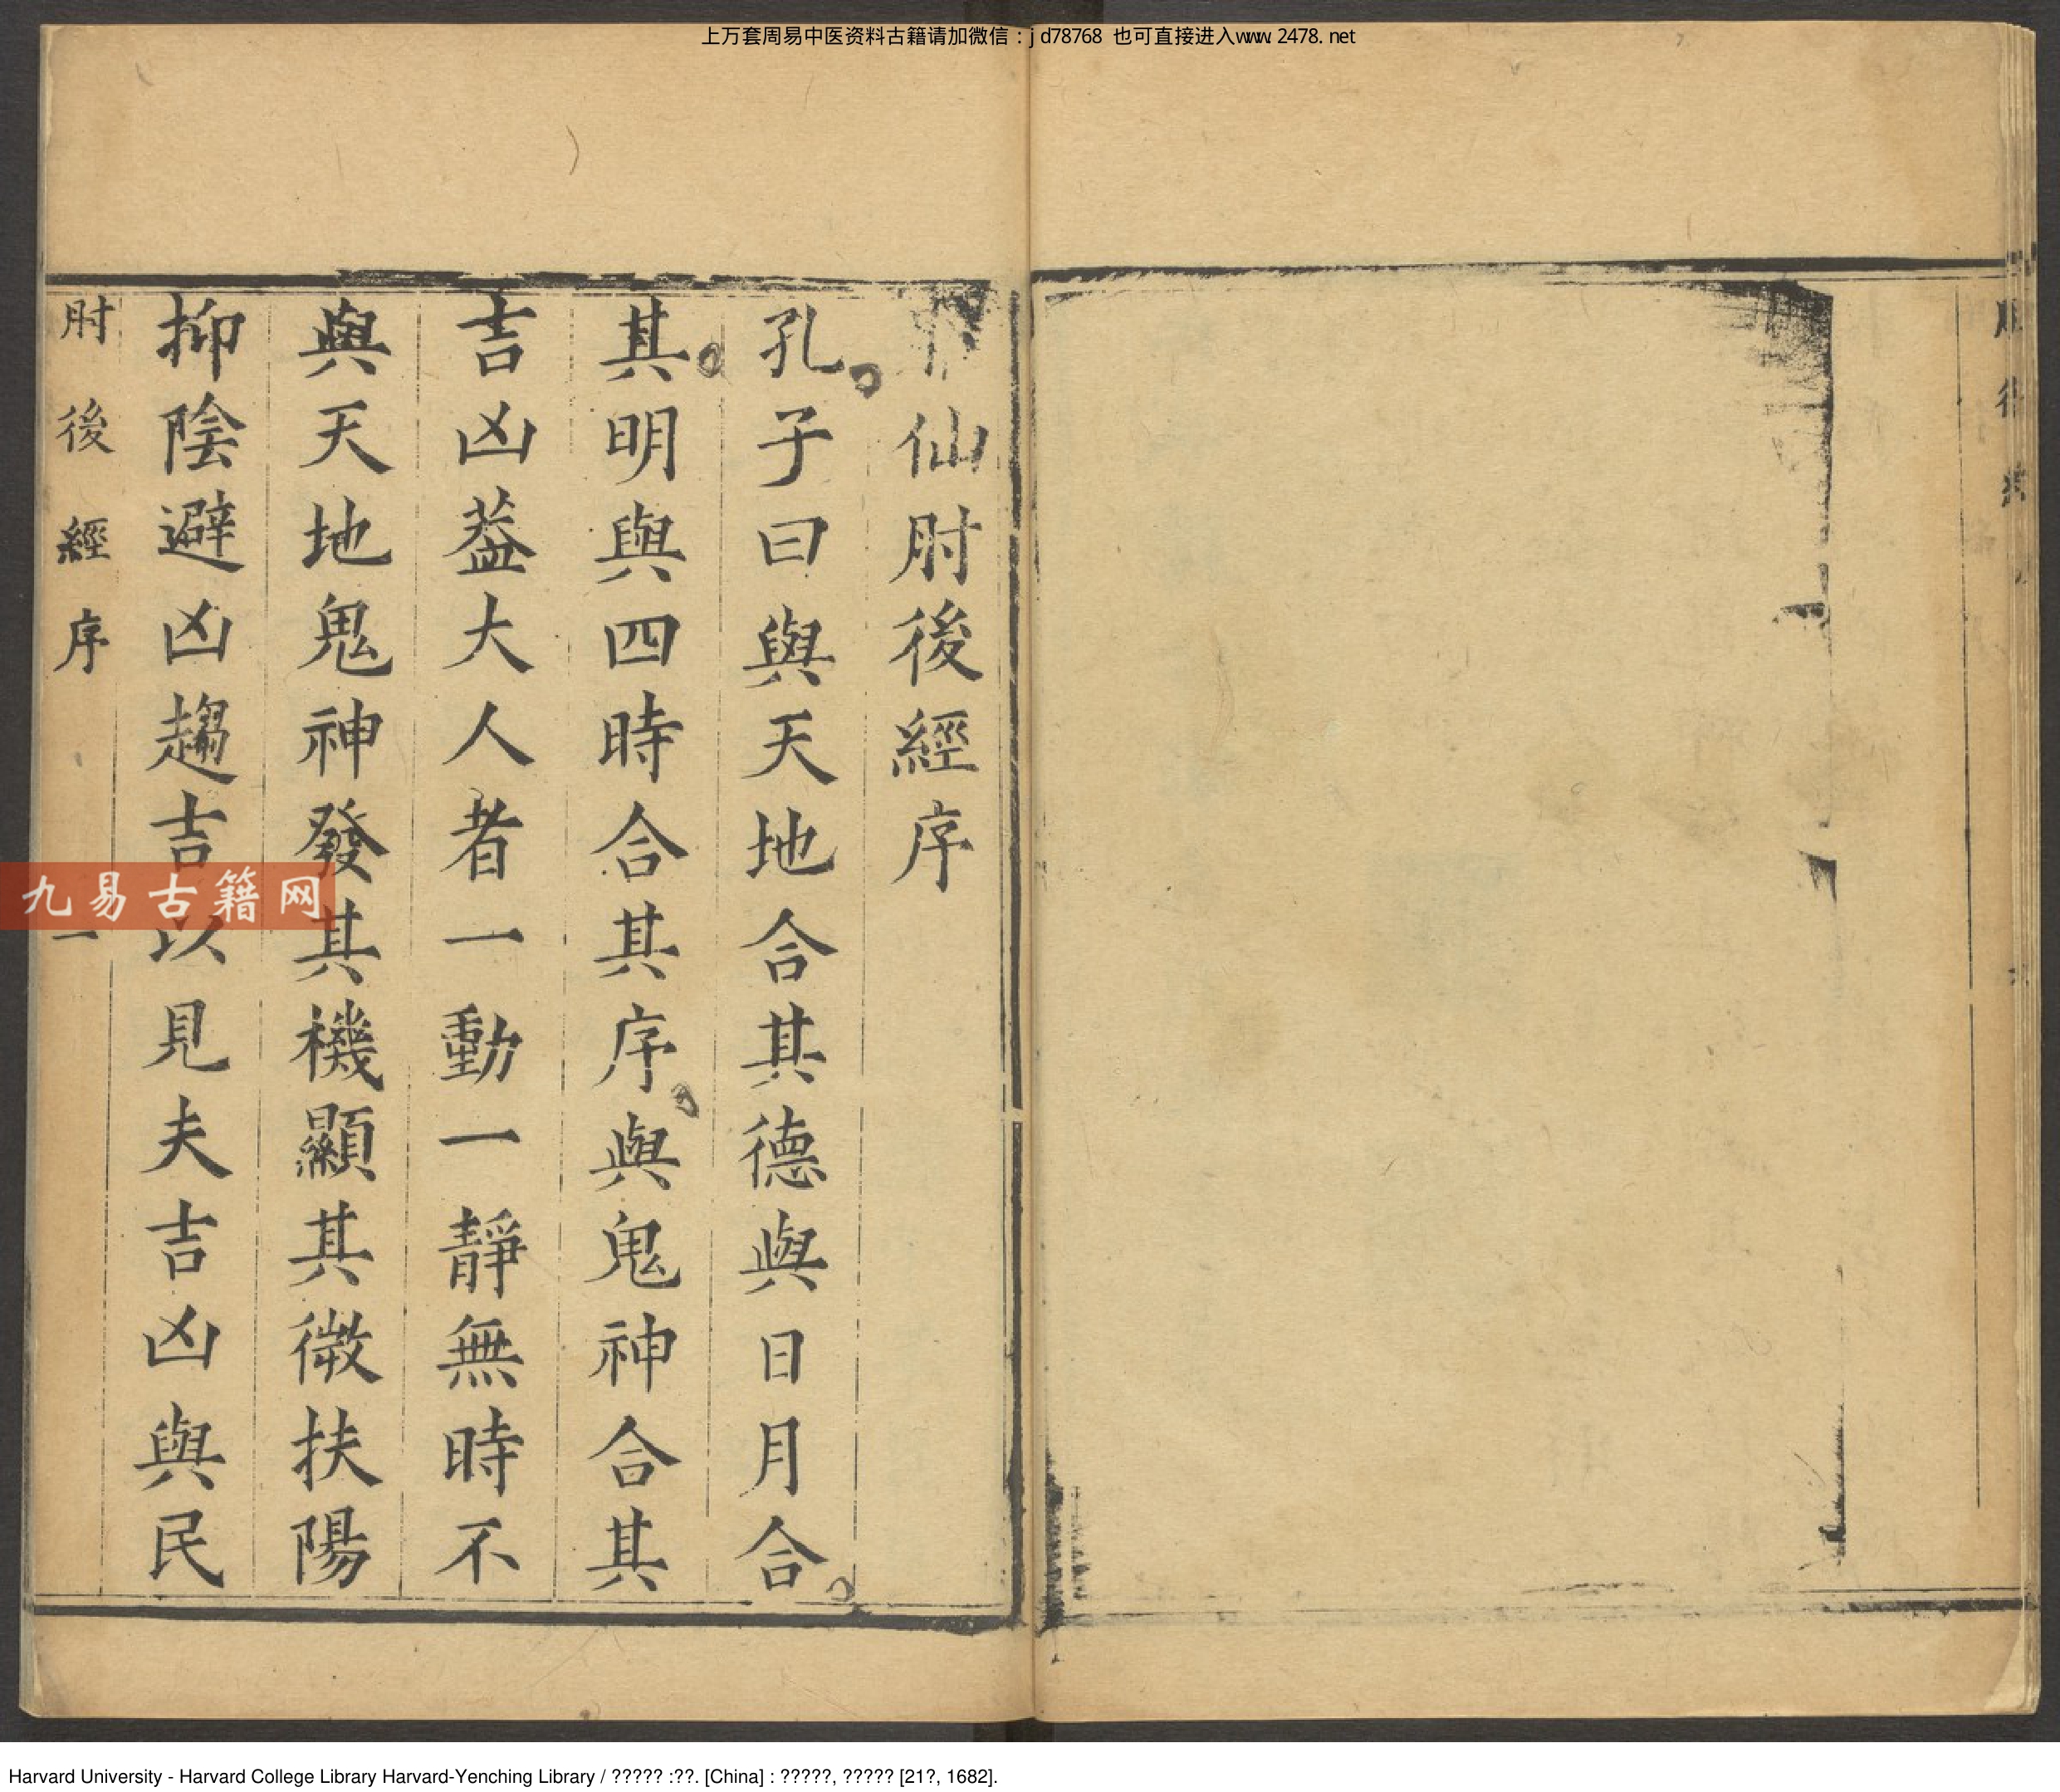 上万套周易中医资料古籍请加微信：jd78768 也可直接进入www.2478.net
仙肘後經序
孔子曰與天地合其德與日月合
其明與四時合其序與鬼神合其
吉凶葢大人者一動一靜無時不
與天地鬼神發其機顯其微扶陽
抑陰避凶趨吉以見夫吉凶與民
肘後經序 一
九易古籍网
Harvard University - Harvard College Library Harvard-Yenching Library / ????? :??. [China] : ?????, ????? [21?, 1682].